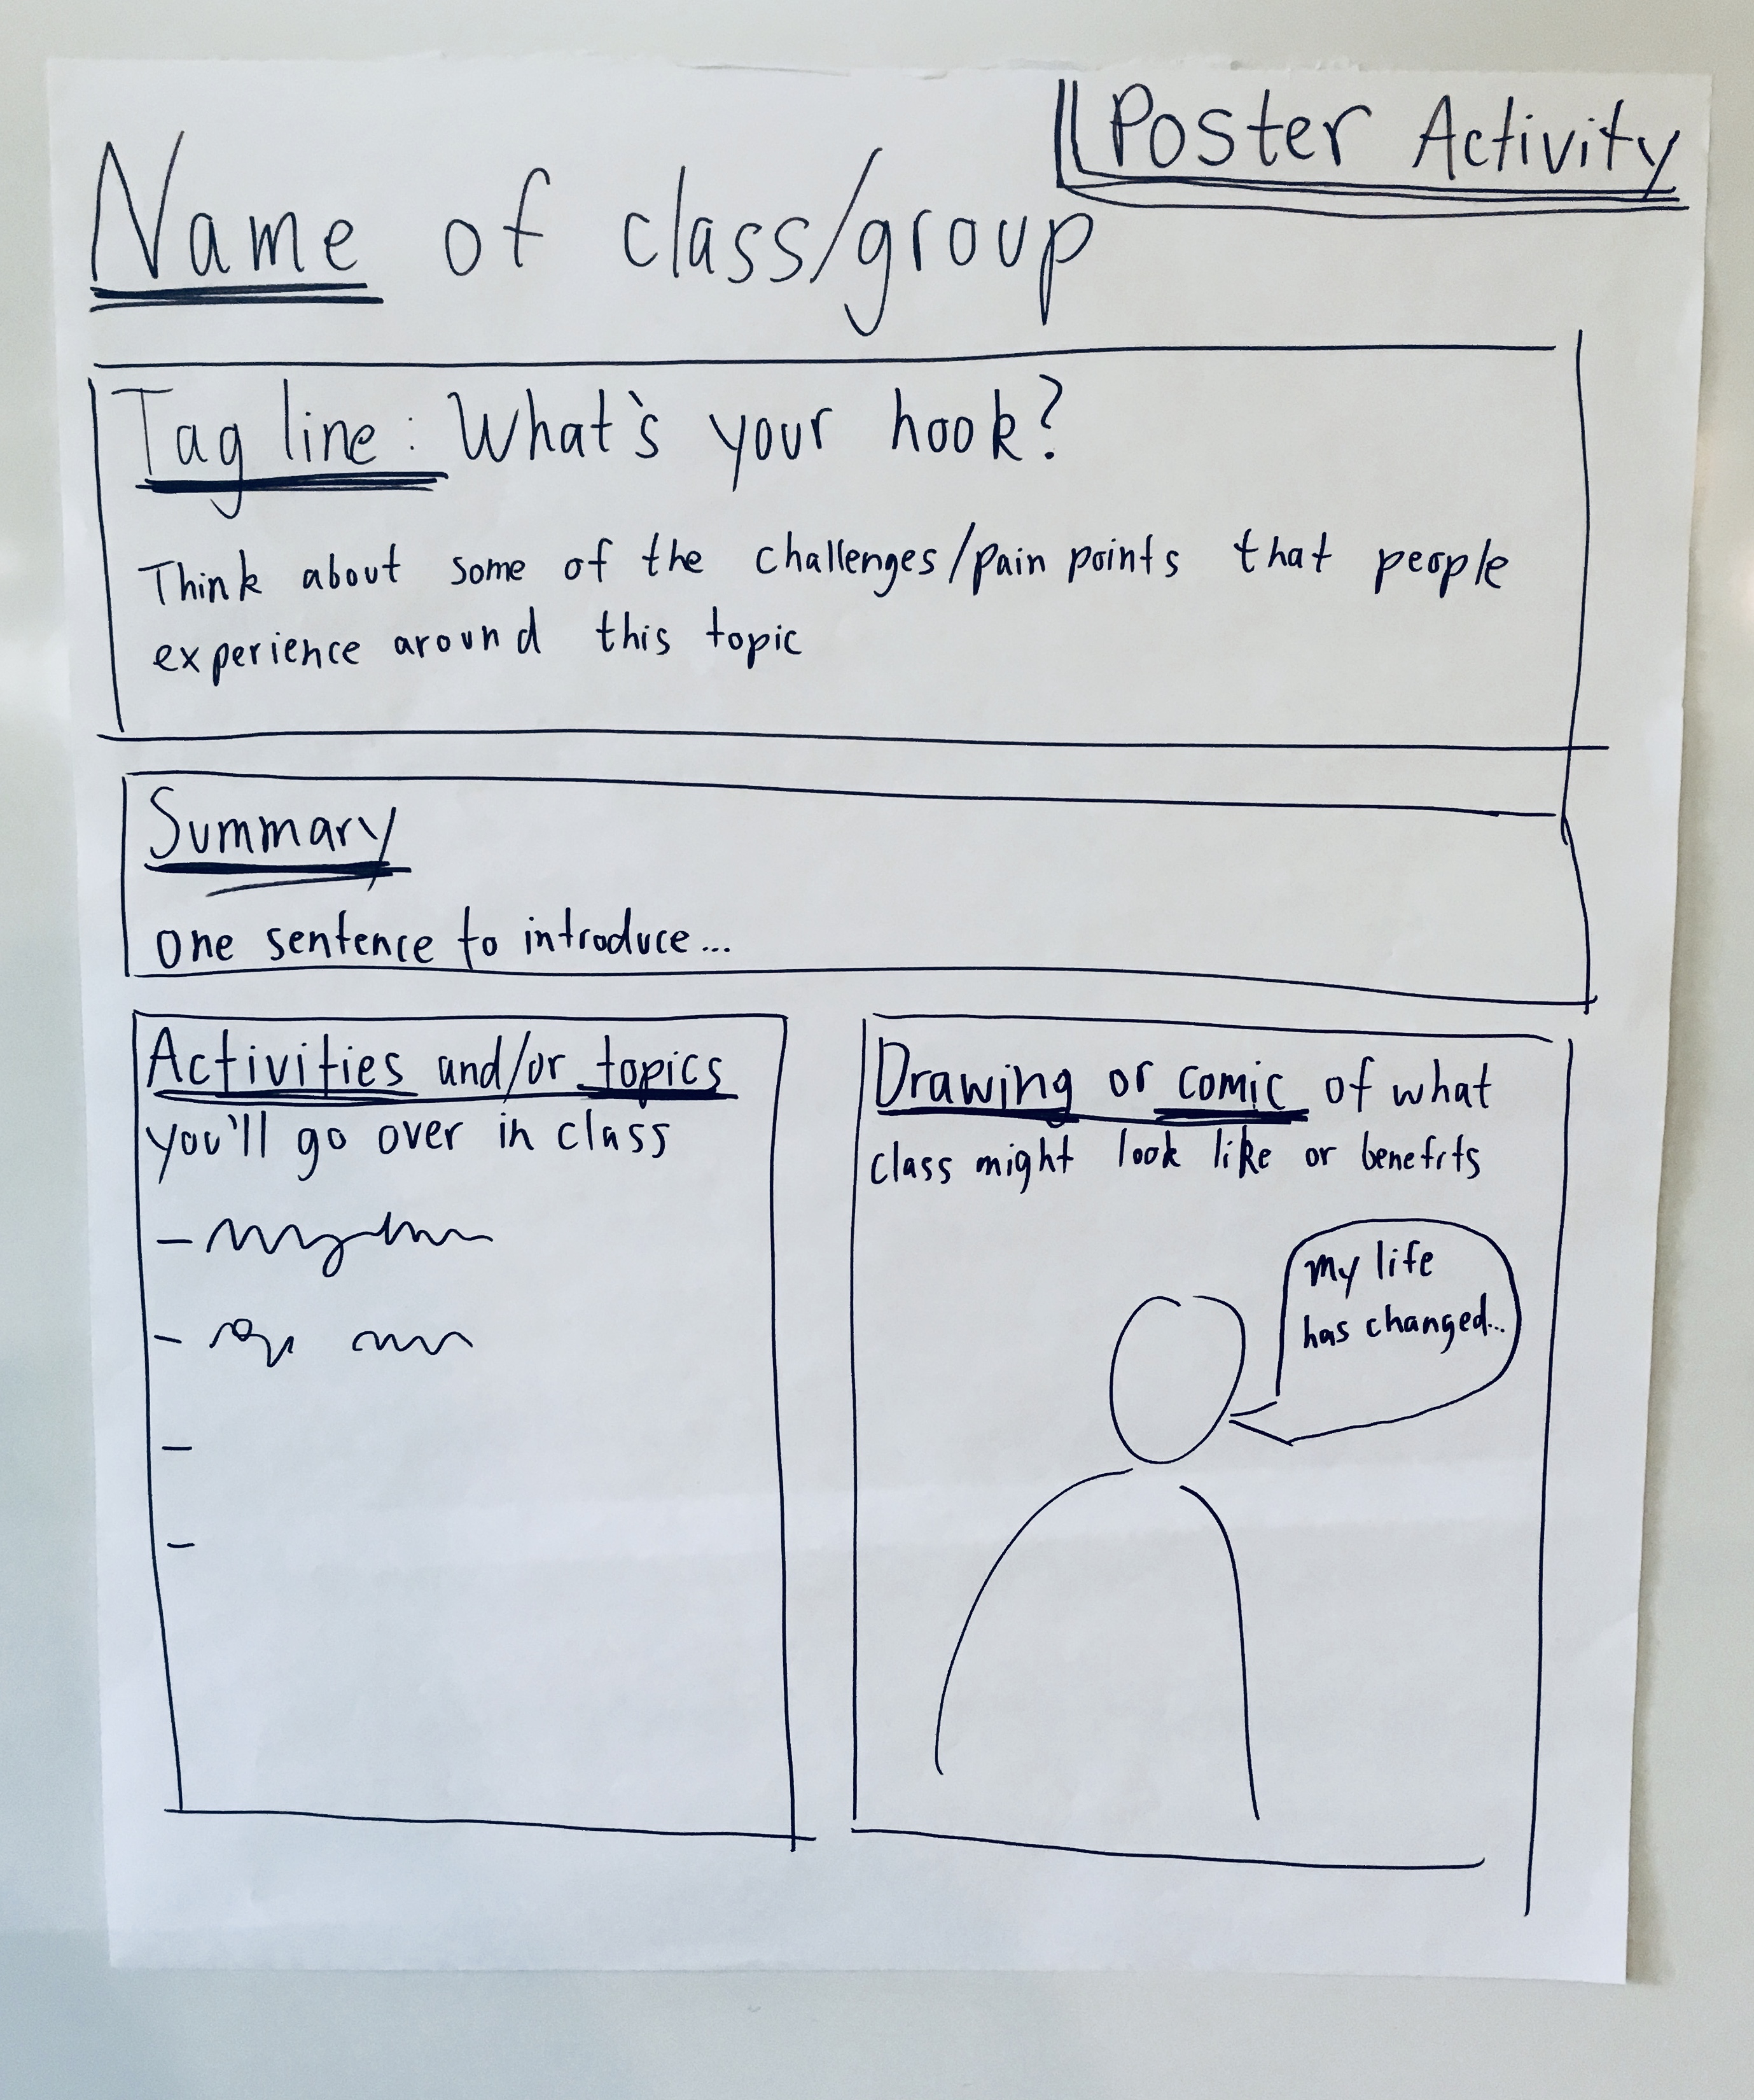 Poster Activity
Name of class/group
Tag line: What's your hook?
Think about some of the challenges/pain points that people
experience around this topic
Summary
one sentence to introduce...
Activities and/or topics
you'll go over in class
-
-
-
-
Drawing or comic of what
class might look like or benefits
my life
has changed...